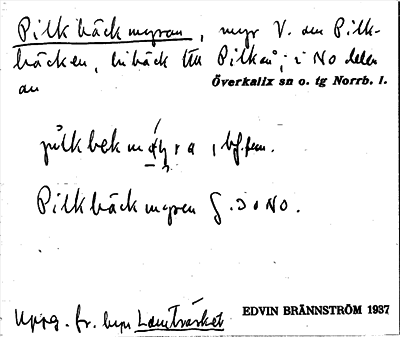 Pilkbäckmyran, myr V. om Pilk-
bäcken, bibäck till Pilkån, i NO delen
av
Överkalix sn o. tg Norrb. l.
Pilkbäckmyren S. O NO.
Uppg. fr. byn Lantträsket
EDVIN BRÄNNSTRÖM 1937